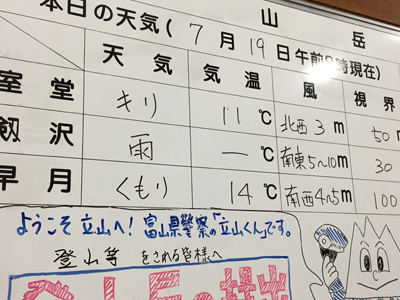 山岳
本日の天気(7月19日午前 時現在)
天気 気温 風 視界
室堂 キリ 11℃ 北西3m 50m
剱沢 雨 ー℃ 南東5~10m 30
早月 くもり 14℃ 南西4~5m 100
ようこそ立山へ!富山県警察の「立山くん」です。
登山等をされる皆様へ